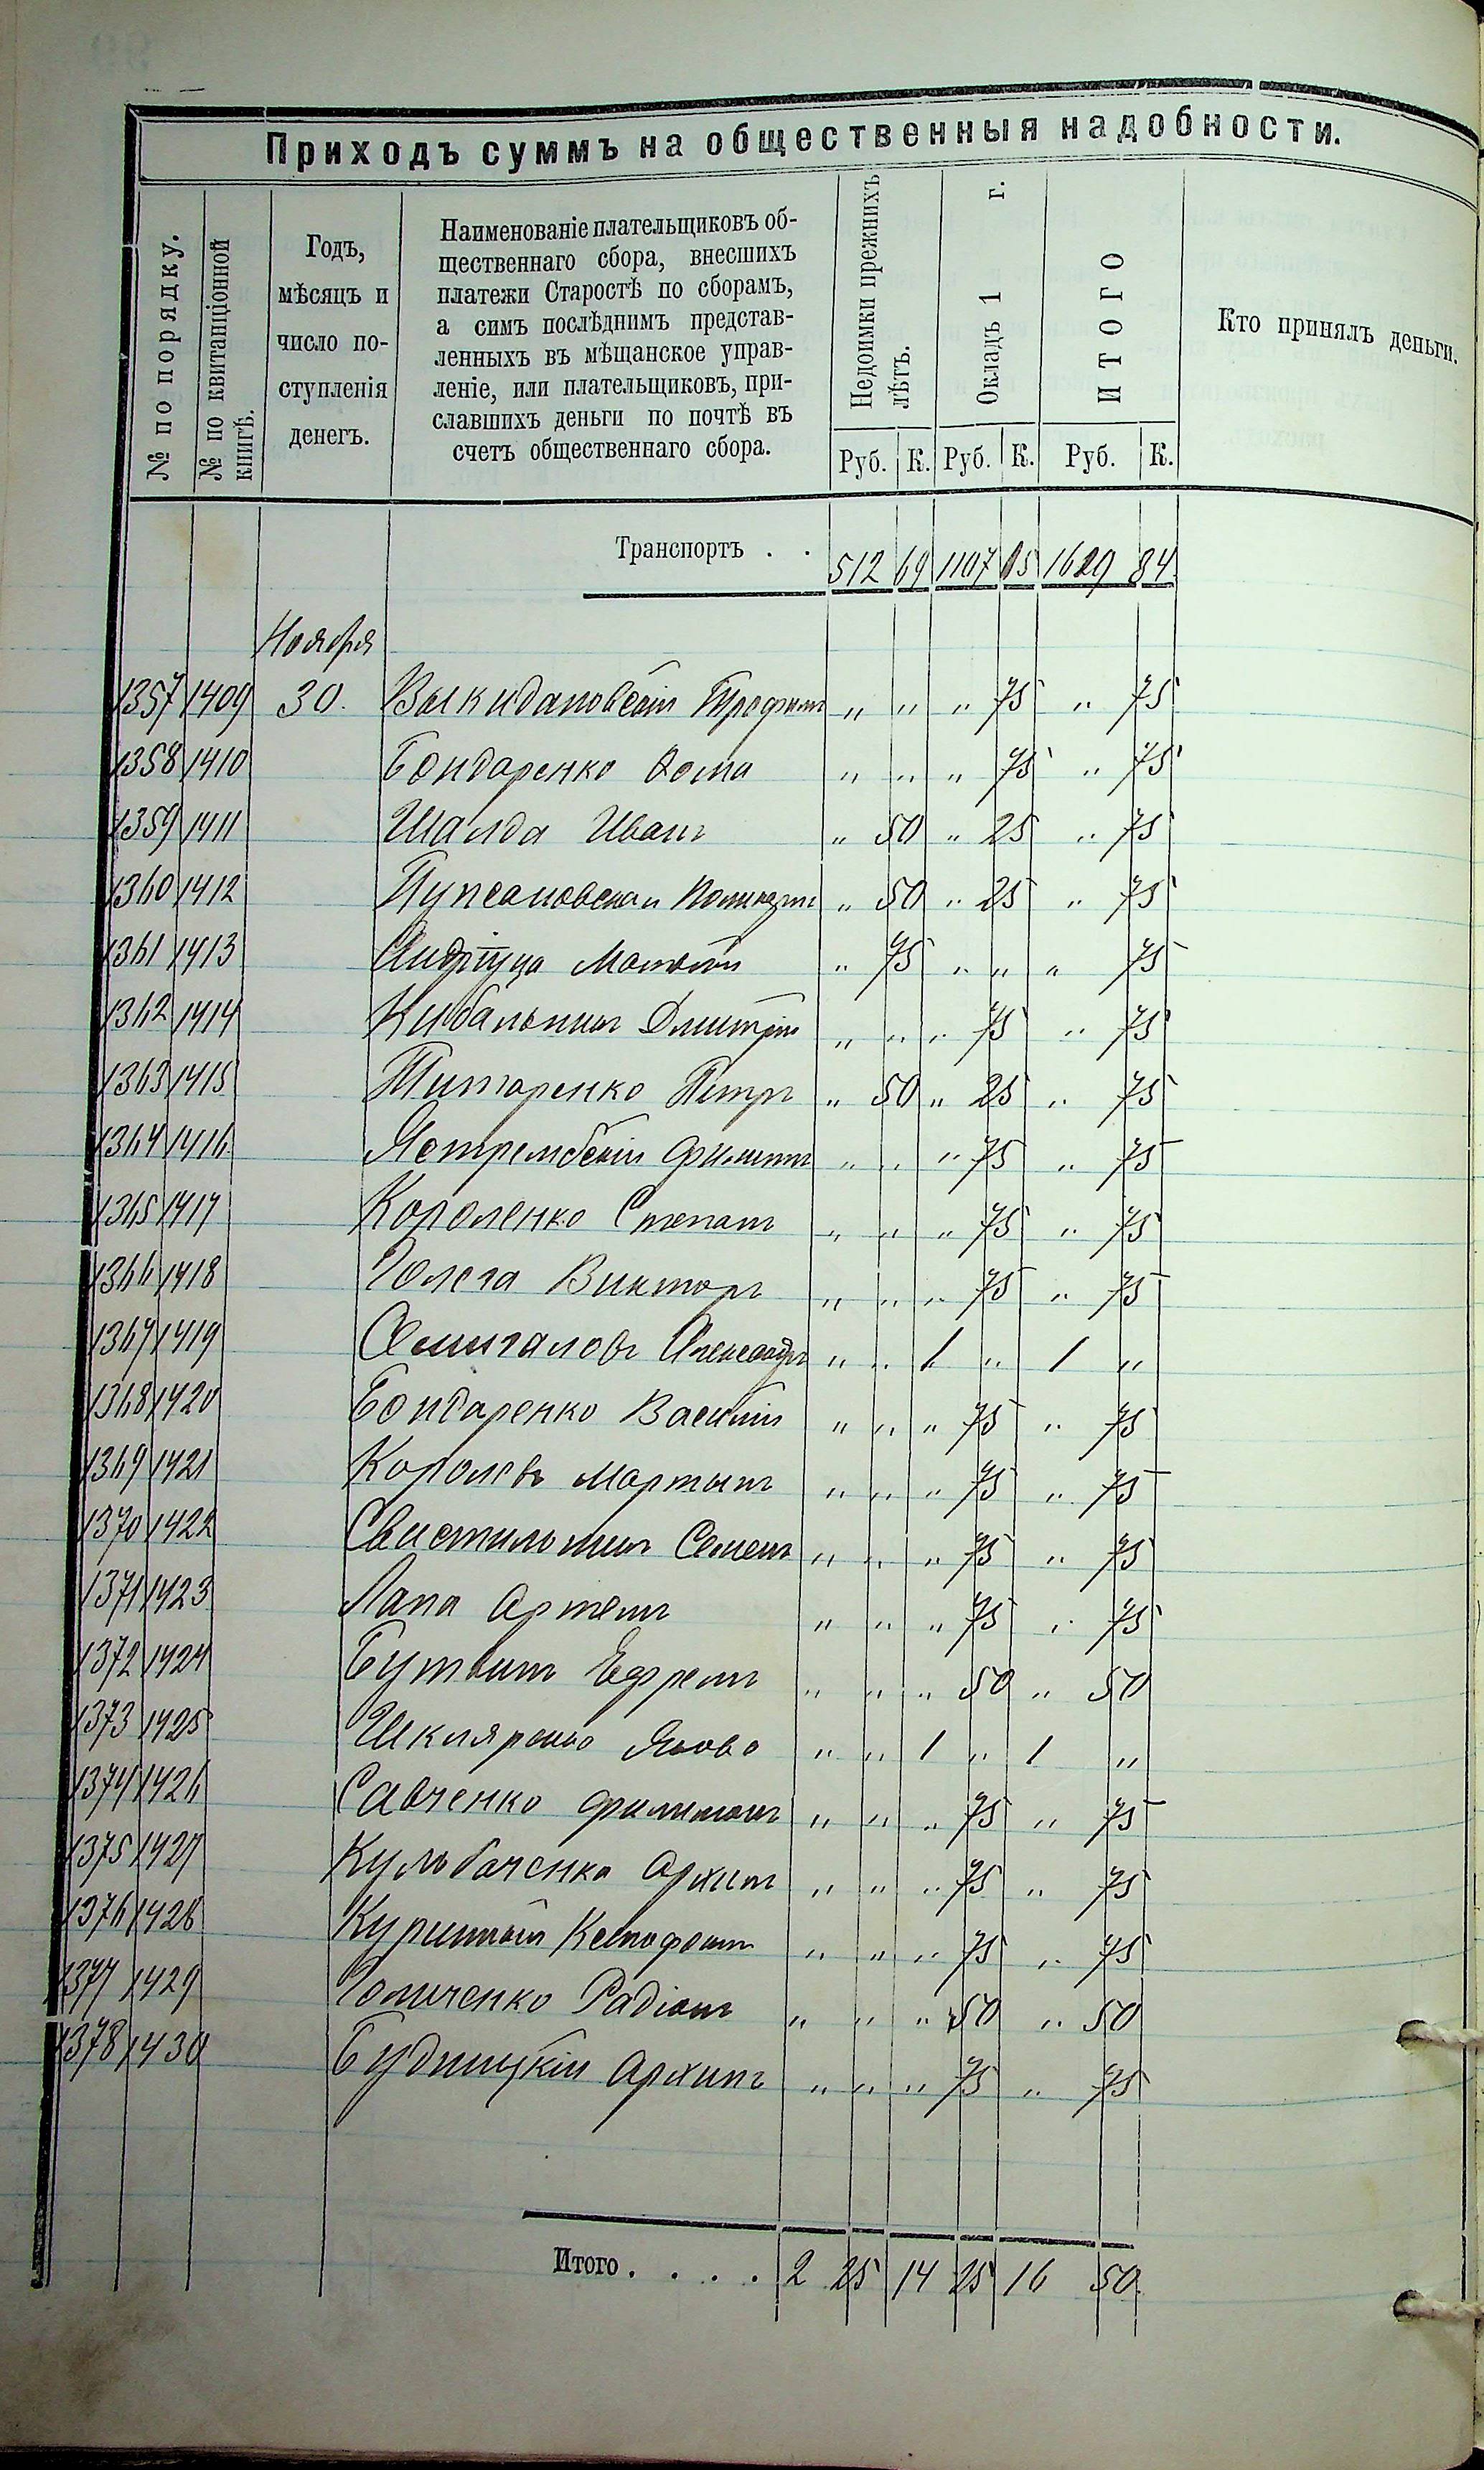 Приходъ суммъ на общественныя надобности.
№ по порядку.
№ по квитанціонной книгѣ.
Годъ,
мѣсяцъ и
число по-
ступленія
денегъ.
Наименованіе плательщиковъ об-
щественнаго сбора, внесшихъ
платежи Старостѣ по сборамъ,
а симъ послѣднимъ представ-
ленныхъ въ мѣщанское управ-
леніе, или плательщиковъ, при-
славшихъ деньги по почтѣ въ
счетъ общественнаго сбора.
Недоимки прежнихъ лѣтъ.
Окладъ 1 г.
ИТОГО
Кто принялъ деньги.
Руб. К. Руб. К. Руб. К.
Транспортъ . . 512 69 1107 1629 84
Ноября
1357 1409 30. Выкидановскій Трофимъ „ „ „ 75 „ 75
1358 1410 Бондаренко Фома „ „ „ 75 „ 75
1359 1411 Шалда Иванъ „ 50 „ 25 „ 75
1360 1412 „ 50 „ 25 „ 75
1361 1413 „ 75 „ „ „ 75
1362 1414 Кибальникъ Дмитрій „ „ „ 75 „ 75
1363 1415 Титаренко Петръ „ 50 „ 25 „ 75
1364 1416 Ястрембскій Филиппъ „ „ „ 75 „ 75
1365 1417 Короленко Степанъ „ „ „ 75 „ 75
1366 1418 Викторъ „ „ „ 75 „ 75
1367 1419 Семигаловъ Александръ „ „ 1 „ 1 „
1368 1420 Бондаренко Василій „ „ „ 75 „ 75
1369 1421 Королевъ Мартынъ „ „ „ 75 „ 75
1370 1422 Свистильникъ Семенъ „ „ „ 75 „ 75
1371 1423 Лапа Артемъ „ „ „ 75 „ 75
1372 1424 Бутвинъ Ефремъ „ „ „ 50 „ 50
1373 1425 Шкляренко Якова „ „ 1 „ 1 „
1374 1426 Савченко Филимонъ „ „ „ 75 „ 75
1375 1427 Кульбаченко Архипъ „ „ „ 75 „ 75
1376 1428 Куринный Ксенофонтъ „ „ „ 75 „ 75
1377 1429 Радіонъ „ „ „ 50 „ 50
1378 1430 Будницкій Архипъ „ „ „ 75 „ 75
Итого . . . . 2 25 14 25 16 50